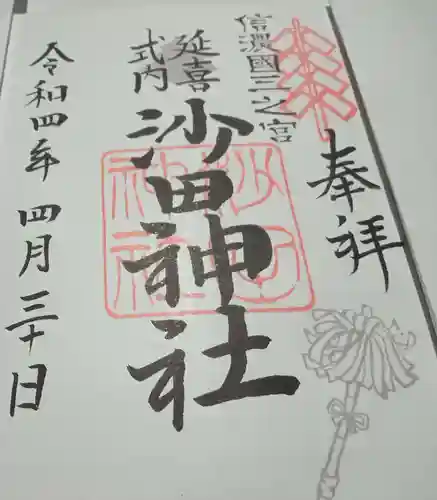 奉拝
信濃國三之宮
延喜
式内
沙田神社
令和四年 四月三十日